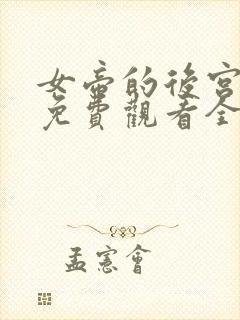 女帝的後宮
免費觀看全
孟憲會